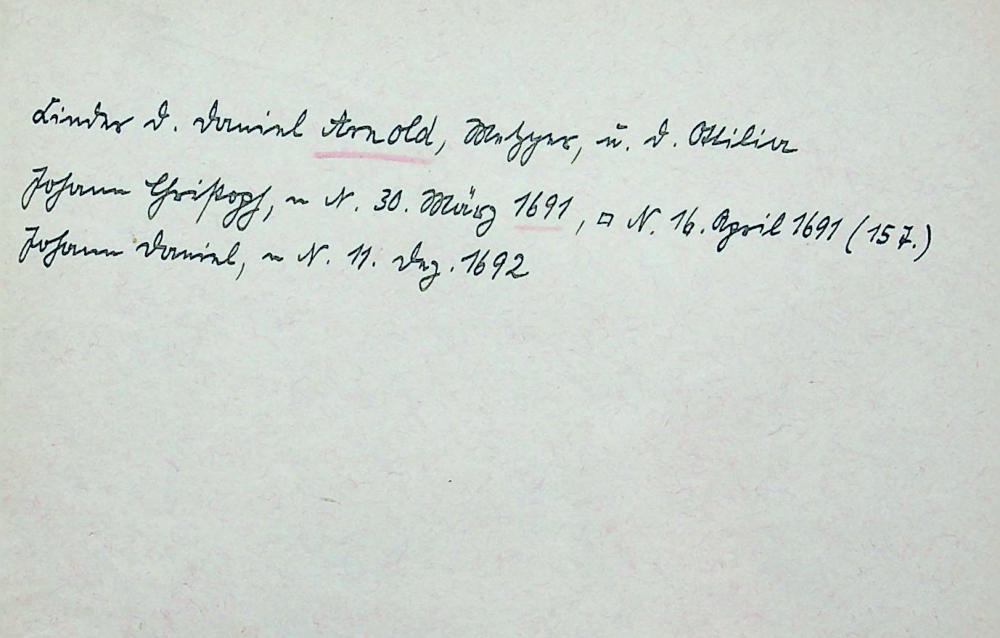 Kinder d. Daniel Arnold, Metzger, u. d. Ottilia
Johann Christoph, ~ N. 30. März 1691, □ N. 16. April 1691 (15 T.)
Johann Daniel, ~ N. 11. Dez. 1692